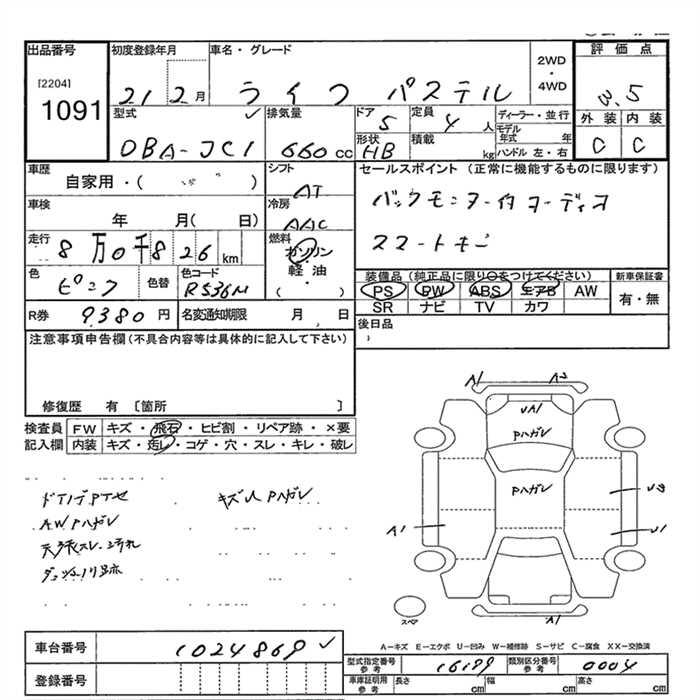 出品番号 初度登録年月 車名・グレード 2WD・4WD 評価点
[2204] 1091
21 2月 ライフ パステル 3.5
型式 排気量 ドア 5 定員 4人 ディーラー・並行 外装 内装
DBA-JC1 660cc 形状 HB 積載 kg モデル年式 年 ハンドル 左・右 C C
車歴 自家用・( ) シフト AT セールスポイント (正常に機能するものに限ります)
車検 年 月( 日) 冷房 AAC バックモニター付オーディオ
走行 8万0千826km 燃料 ガソリン・軽油・( ) スマートキー
色 ピンク 色替 色コード R536M 装備品(純正品に限り○をつけてください) 新車保証書
PS PW ABS エアB AW 有・無
SR ナビ TV カワ
R券 9380円 名変通知期限 月 日 後日品
注意事項申告欄(不具合内容等は具体的に記入して下さい)
修復歴 有〔箇所 〕
検査員記入欄 FW キズ・飛石・ヒビ割・リペア跡・×要
内装 キズ・汚レ・コゲ・穴・スレ・キレ・破レ
A1 A2
UA1
Pハガレ
Pハガレ
キズ Pハガレ
AWハガレ
A1 U1
天張スレ・汚れ
A1
A-キズ E-エクボ U-凹み W-補修跡 S-サビ C-腐食 XX-交換済
車台番号 1024869
型式指定番号 参考 16199 類別区分番号 参考 0004
登録番号 車庫証明用 参考 長さ cm 幅 cm 高さ cm